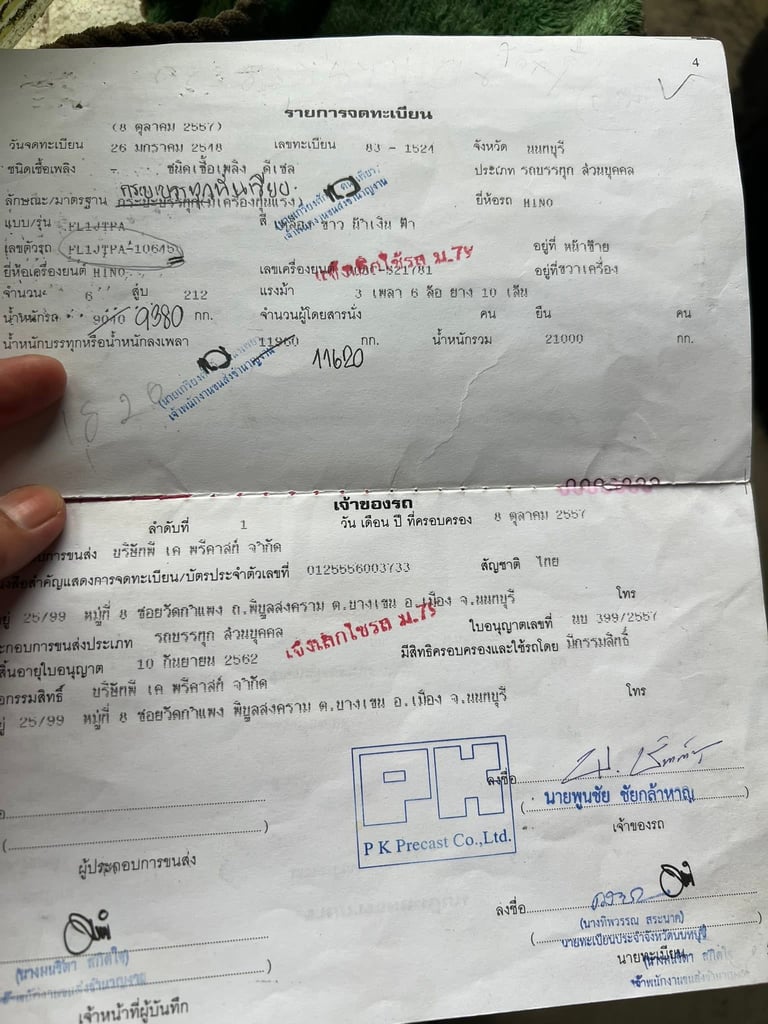 4
รายการจดทะเบียน
(8 ตุลาคม 2557)
วันจดทะเบียน 26 มกราคม 2548 เลขทะเบียน 83 - 1524 จังหวัด นนทบุรี
ชนิดเชื้อเพลิง - ชนิดเชื้อเพลิง ดีเซล ประเภท รถบรรทุก ส่วนบุคคล
ลักษณะ/มาตรฐาน กระบะบรรทุก ยี่ห้อรถ HINO
แบบ/รุ่น FL1JTPA สี เหลือง ขาว น้ำเงิน ฟ้า
เลขตัวรถ FL1JTPA-10645 อยู่ที่ หน้าซ้าย
แจ้งเลิกใช้รถ ม.79
ยี่ห้อเครื่องยนต์ HINO เลขเครื่องยนต์ อยู่ที่ ขวาเครื่อง
จำนวน 6 สูบ 212 แรงม้า 3 เพลา 6 ล้อ ยาง 10 เส้น
น้ำหนักรถ 9040 9380 กก. จำนวนผู้โดยสารนั่ง คน ยืน คน
น้ำหนักบรรทุกหรือน้ำหนักลงเพลา 11960 กก. น้ำหนักรวม 21000 กก.
11620
เจ้าพนักงานขนส่งชำนาญงาน
เจ้าของรถ
ลำดับที่ 1 วัน เดือน ปี ที่ครอบครอง 8 ตุลาคม 2557
บริษัทพี เค พรีคาสท์ จำกัด
0125556003733 สัญชาติ ไทย
25/99 หมู่ที่ 8 ซอยวัดกำแพง ถ.พิบูลสงคราม ต.บางเขน อ.เมือง จ.นนทบุรี โทร
รถบรรทุก ส่วนบุคคล ใบอนุญาตเลขที่ นบ 399/2557
แจ้งเลิกใช้รถ ม.79
10 กันยายน 2562 มีสิทธิครอบครองและใช้รถโดย มีกรรมสิทธิ์
บริษัทพี เค พรีคาสท์ จำกัด
25/99 หมู่ที่ 8 ซอยวัดกำแพง พิบูลสงคราม ต.บางเขน อ.เมือง จ.นนทบุรี โทร
PK
P K Precast Co.,Ltd.
ลงชื่อ
(นายพูนชัย ชัยกล้าหาญ)
ผู้ประกอบการขนส่ง
เจ้าของรถ
ลงชื่อ
(นางทิพวรรณ สระนาค)
นายทะเบียนประจำจังหวัดนนทบุรี
นายทะเบียน
เจ้าพนักงานขนส่งชำนาญงาน
เจ้าพนักงานขนส่งชำนาญงาน
เจ้าหน้าที่ผู้บันทึก